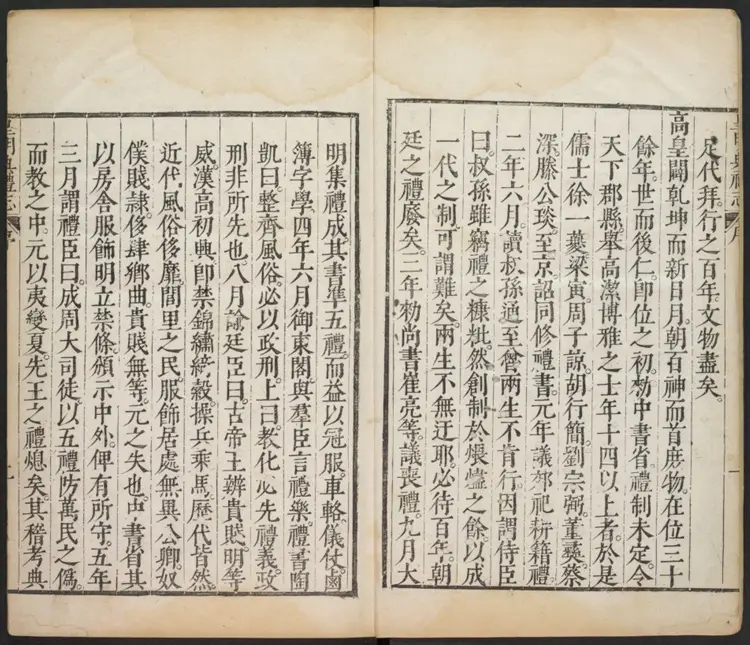 足代拜。行之百年。文物盡矣。
高皇闢乾坤而新日月。朝百神而首庶物。在位三十
餘年。世而後仁。卽位之初。勑中書省。禮制未定。令
天下郡縣。募高潔博雅之士年十四以上者。於是
儒士徐一蘷。梁寅。周子諒。胡行簡。劉宗弼。董彞。蔡
深。滕公琰。至京。詔同修禮書。元年議郊祀耕籍禮。
二年六月。讀叔孫通至魯兩生不肯行。因謂侍臣
曰。叔孫雖竊禮之糠粃。然創制於煨燼之餘。以成
一代之制。可謂難矣。兩生不無迂耶。必待百年。朝
廷之禮廢矣。三年勑尚書崔亮等議喪禮。九月大
明集禮成。其書準五禮。而益以冠服。車輅。儀仗。鹵
簿。字學。四年六月。御東閣。與羣臣言禮樂。禮書陶
凱曰。整齊風俗。必以政刑。上曰。敎化必先禮義。政
刑非所先也。八月諭廷臣曰。古帝王辨貴賤。明等
威。漢高初興。卽禁錦繡綺縠。操兵乘馬。歷代皆然。
近代風俗侈靡。閭里之民。服飾居處。無異公卿。奴
僕賤隸。侈肆鄉曲。貴賤無等。元之失也。中書省其
以房舍服飾。明立禁條。頒示中外。俾有所守。五年
三月。謂禮臣曰。成周大司徒。以五禮防萬民之僞。
而敎之中。元以夷變夏。先王之禮熄矣。其稽考典